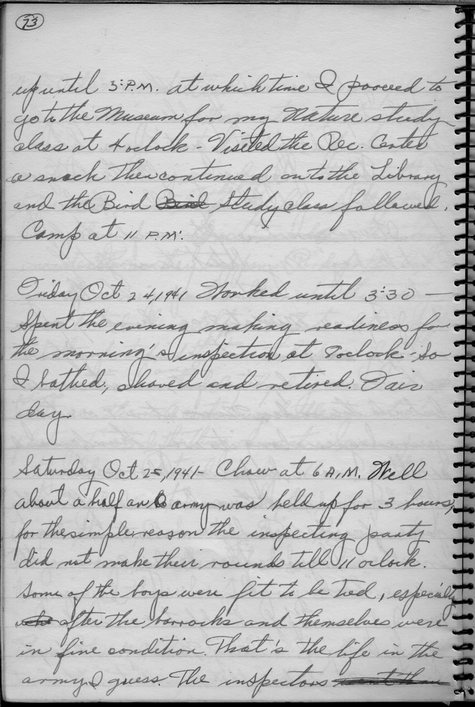 73
up until 3:P.M. at which time I pooceed to
go to the Museum for my Nature study
class at 4 oclock - Visited the Rec. Center
a snack then continued on to the Library
and the Bird Bird Study class followed.
Camp at 11 P.M.
Friday Oct 24, 1941 Worked until 3:30 —
Spent the evening making readiness for
the morning's inspection at 8oclock - So
I bathed, shaved and retired. Fair
day.
Saturday Oct 25, 1941 - Chow at 6 A.M. Well
about a half an army was held up for 3 hours,
for the simple reason the inspecting party
did not make their rounds till 11 oclock.
Some of the boys were fit to be tied, especially
after the barracks and themselves were
in fine condition. That's the life in the
army I guess. The inspectors